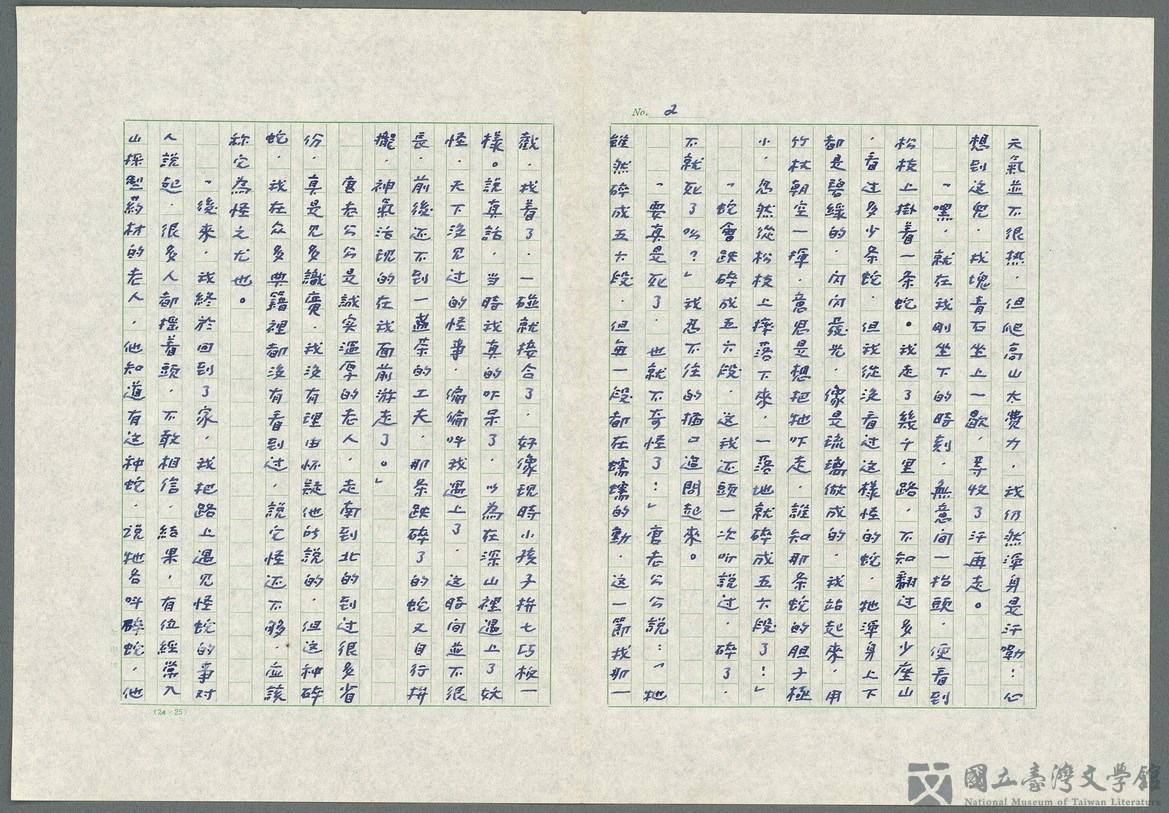 No. 2
天氣並不很熱．但爬高山太費力．我仍然渾身是汗嘞：心
想到這兒．找塊青石坐上一歇，等收了汗再走。
「嘿．就在我剛坐下的時刻．無意间一抬頭．便看到
松枝上掛着一条蛇。我走了幾千里路．不知翻过多少座山
．看过多少条蛇．但我從沒看过這樣怪的蛇．牠渾身上下
都是碧緑的．闪闪發光．像是琉璃做成的．我站起來．用
竹杖朝空一揮．意思是想把牠吓走．誰知那条蛇的胆子極
小．忽然從松枝上摔落下來．一落地就碎成五六段了！」
「蛇會跌碎成五六段．这我还頭一次听說过．碎了．
不就死了吗？」我忍不住的插口追問起來。
「要真是死了．也就不奇怪了：」官老公公說：「牠
雖然碎成五六段．但每一段都在蠕蠕的動．这一節找那一
截．找着了．一碰就接合了．好像現時小孩子拚七巧板一
樣。說真話．当時我真的吓呆了．以為在深山裡遇上了妖
怪．天下沒見过的怪事．偏偏叫我遇上了．这時间並不很
長．前後还不到一盞茶的工夫．那条跌碎了的蛇又自行拚
攏．神氣活現的在我面前游走了。」
官老公公是誠实溫厚的老人．走南到北的到过很多省
份．真是見多識廣．我沒有理由怀疑他的說的．但这种碎
蛇．我在众多典籍裡都沒有看到过．說它怪还不够．应該
称它為怪之尤也。
「後來．我終於回到了家．我把路上遇見怪蛇的事对
人說起．很多人都摇着頭．不敢相信．結果，有位經常入
山採㓝葯材的老人．他知道有这种蛇．說牠名叫碎蛇．他
(24×25)
國立臺灣文學館
National Museum of Taiwan Literature